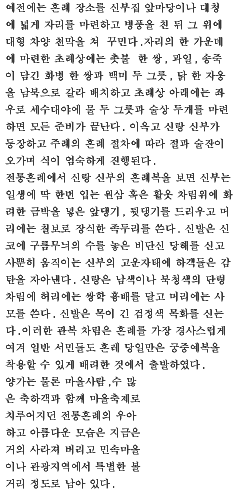 예전에는 혼례 장소를 신부집 앞마당이나 대청
에 넓게 자리를 마련하고 병풍을 친 뒤 그 위에
대형 차양 천막을 쳐 꾸민다.자리의 한 가운데
에 마련한 초례상에는 촛불 한 쌍, 과일, 송죽
이 담긴 화병 한 쌍과 백미 두 그릇, 닭 한 자웅
을 남북으로 갈라 배치하고 초례상 아래에는 좌
우로 세수대야에 물 두 그릇과 술상 두개를 마련
하면 모든 준비가 끝난다. 이윽고 신랑 신부가
등장하고 주례의 혼례 절차에 따라 절과 술잔이
오가며 식이 엄숙하게 진행된다.
전통혼례에서 신랑 신부의 혼례복을 보면 신부는
일생에 딱 한번 입는 원삼 혹은 활옷 차림위에 화
려한 금박을 넣은 앞댕기, 뒷댕기를 드리우고 머
리에는 칠보로 장식한 족두리를 쓴다. 신발은 신
코에 구름무늬의 수를 놓은 비단신 당혜를 신고
사뿐히 움직이는 신부의 고운자태에 하객들은 감
탄을 자아낸다. 신랑은 남색이나 북청색의 단령
차림에 허리에는 쌍학 흉배를 달고 머리에는 사
모를 쓴다. 신발은 목이 긴 검정색 목화를 신는
다.이러한 관복 차림은 혼례를 가장 경사스럽게
여겨 일반 서민들도 혼례 당일만은 궁중예복을
착용할 수 있게 배려한 것에서 출발하였다.
양가는 물론 마을사람,수 많
은 축하객과 함께 마을축제로
치루어지던 전통혼례의 우아
하고 아름다운 모습은 지금은
거의 사라져 버리고 민속마을
이나 관광지역에서 특별한 볼
거리 정도로 남아 있다.